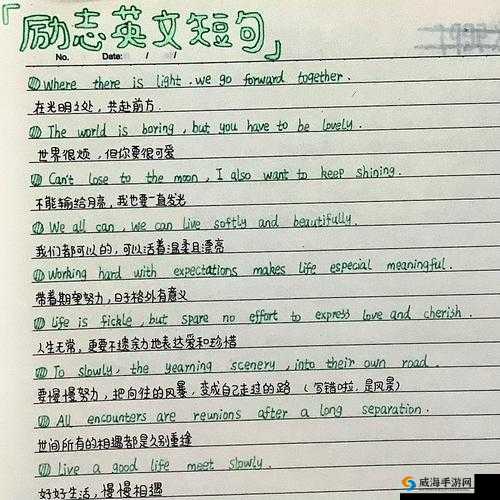 「励志英文短句」
No. Date: / /
① Where there is light. we go forward together.
在光明之处，共赴前方.
① The world is boring, but you have to be lovely.
世界很烦，但你要很可爱
① Can't lose to the moon, I also want to keep shining.
不能输给月亮，我也要一直发光
① We all can, we can live softly and beautifully.
我们都可以的，可以活着温柔且漂亮
① Working hard with expectations makes life especial meaningful.
带着期望努力，日子格外有意义
① Life is fickle, but spare no effort to express love and cherish.
人生无常，更要不遗余力地表达爱和珍惜
① To slowly, the yearning scenery, into their own road.
要慢慢努力，把向往的风暴，变成自己走过的路（写错啦，是风景）
① All encounters are reunions after a long separation.
世间所有的相遇都是久别重逢
① Live a good life meet slowly.
好好生活，慢慢相遇
威海手游网